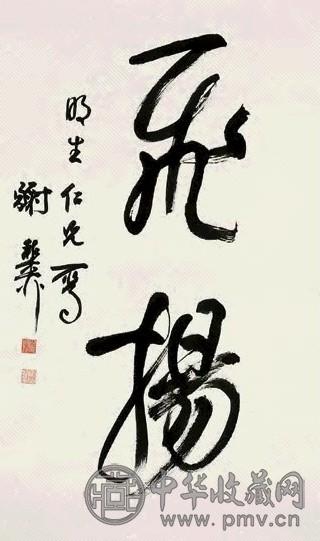 飛揚
明生仁兄
謝
中华收藏网
www.pmv.cn